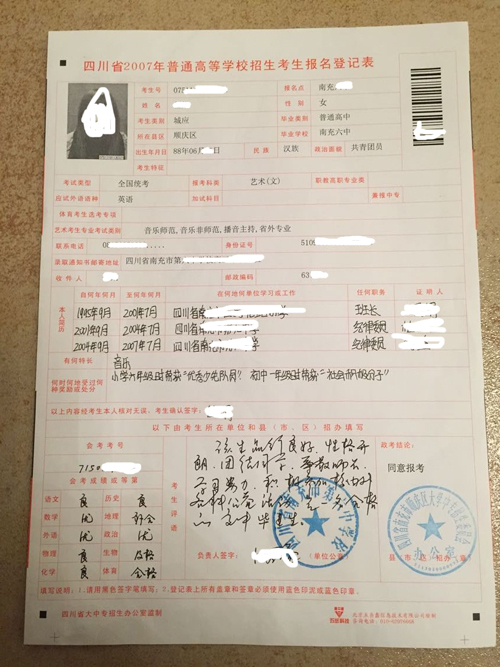 四川省2007年普通高等学校招生考生报名登记表
考生号 07 报名点 南充
姓名 性别 女
考生类别 城应 毕业类别 普通高中
所在县区 顺庆区 毕业学校 南充六中
出生年月日 88年06月 日 民族 汉族 政治面貌 共青团员
考生特征
考试类型 全国统考 报考科类 艺术(文) 职教高职专业类
应试外语语种 英语 加试科目 兼报中专
体育考生选考专项
艺术考生专业考试类别 音乐师范,音乐非师范,播音主持,省外专业
联系电话 0 身份证号 510
录取通知书邮寄地址 四川省南充市第
收件人 邮政编码 63
本人简历 自何年何月 至何年何月 在何地何单位学习或工作 任何职务 证明人
1995年9月 2001年7月 四川省南 班长
2001年9月 2004年7月 四川省南 纪律委员
2004年9月 2007年7月 四川省南充市 纪律委员
有何特长 音乐
何时何地受过何种奖励或处分 小学六年级时荣获"优秀少先队员" 初中一年级时荣获"社会实践积极分子"
以上内容经考生本人核对无误。考生确认签字:
以下由考生所在单位和县(市、区)招办填写
会考考号
715
会考成绩或等第
语文 良 历史 良
数学 优 地理 合格
外语 优 政治 优
物理 良 生物 及格
化学 良 体育 合格
考生评语
该生品行良好,性格开
朗,团结同学,尊敬师长,
学习努力,积极参加校内外
各种公益活动,是一名合格
的高中毕业生。
负责人签字: (单位公章)
政考结论:
同意报考
县(市、区)招办(章)
办公室
填写说明:1.请用黑色签字笔填写;2.登记表上所有盖章和签章必须使用蓝色印泥或蓝色印章。
四川省大中专招生办公室监制